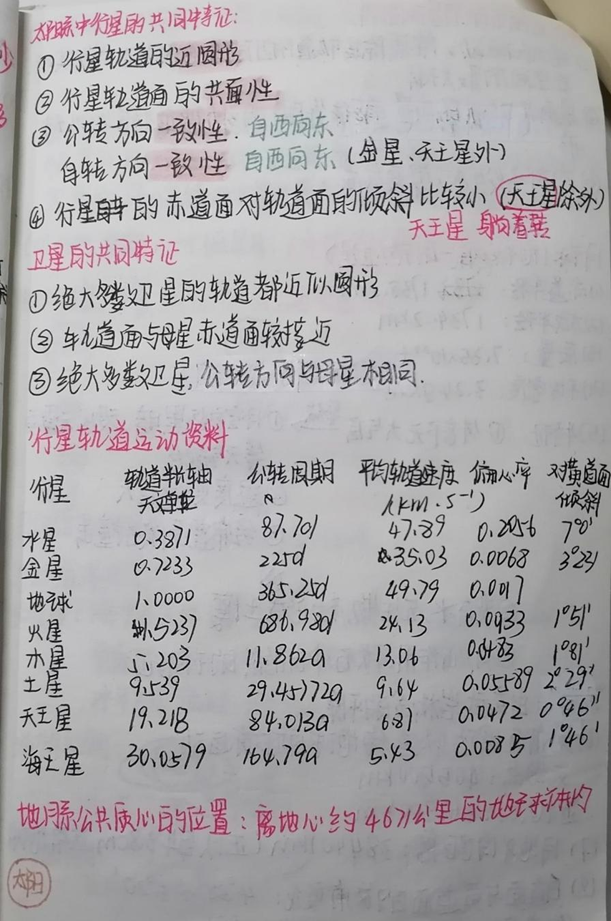 太阳系中行星的共同特征:
① 行星轨道的近圆形
② 行星轨道面的共面性
③ 公转方向一致性. 自西向东
自转方向一致性 自西向东 (金星、天王星外)
④ 行星自转的赤道面对轨道面的倾斜比较小 (天王星除外)
天王星 躺着转
卫星的共同特征
① 绝大多数卫星的轨道都近似圆形
② 轨道面与母星赤道面较接近
③ 绝大多数卫星, 公转方向与母星相同.
行星轨道运动资料
行星 轨道半长轴 公转周期 平均轨道速度 偏心率 对黄道面
天文单位 (km·s⁻¹) 倾斜
水星 0.3871 87.70d 47.89 0.2056 7°0′
金星 0.7233 225d 35.03 0.0068 3°23′
地球 1.0000 365.25d 49.79 0.017
火星 1.5237 686.98d 24.13 0.0933 1°51′
木星 5.203 11.862a 13.06 0.0483 1°81′
土星 9.539 29.45772a 9.64 0.05589 2°29′
天王星 19.218 84.013a 6.81 0.0472 0°46′
海王星 30.0579 164.79a 5.43 0.0085 1°46′
地月系公共质心的位置: 离地心约4671公里的地球体内
太阳